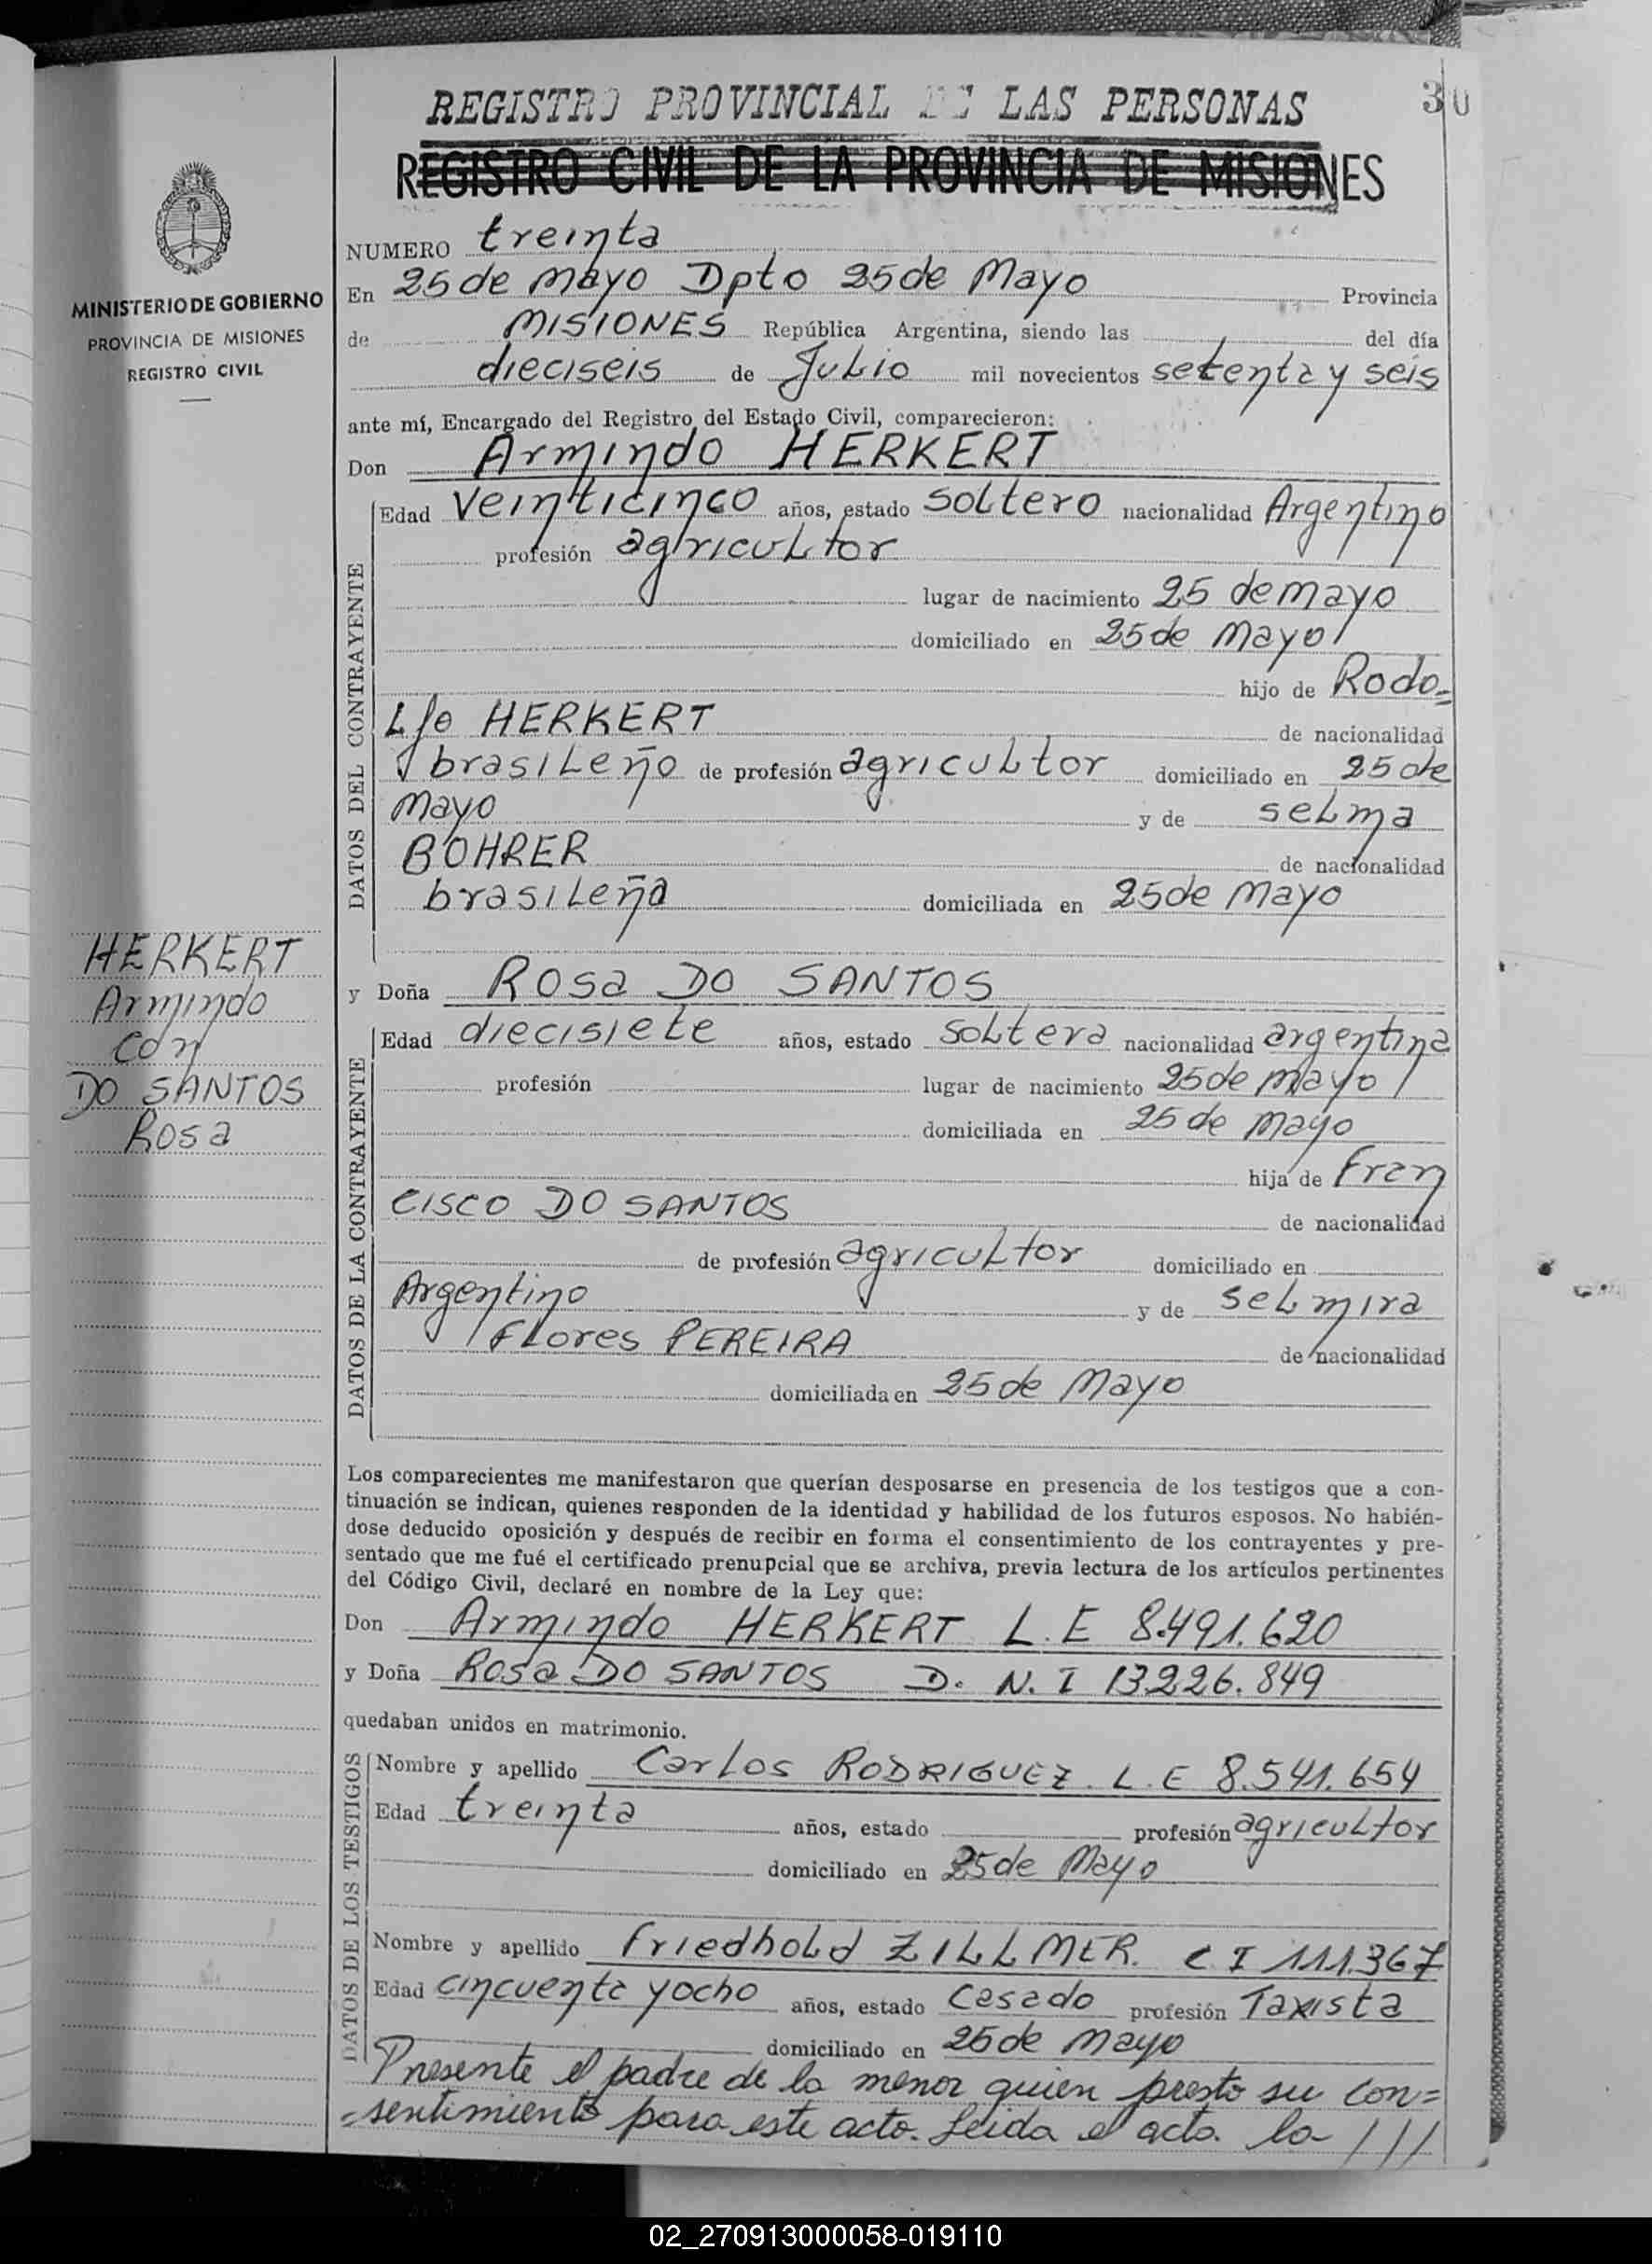 REGISTRO PROVINCIAL DE LAS PERSONAS
30
REGISTRO CIVIL DE LA PROVINCIA DE MISIONES
MINISTERIO DE GOBIERNO
PROVINCIA DE MISIONES
REGISTRO CIVIL
NUMERO treinta
En 25 de mayo Dpto 25 de Mayo Provincia
de MISIONES República Argentina, siendo las del día
dieciseis de Julio mil novecientos setenta y seis
ante mí, Encargado del Registro del Estado Civil, comparecieron:
Don Armindo HERKERT
DATOS DEL CONTRAYENTE
Edad veinticinco años, estado soltero nacionalidad Argentino
profesión agricultor
lugar de nacimiento 25 de mayo
domiciliado en 25 de Mayo
hijo de Rodo=
lfo HERKERT de nacionalidad
brasileño de profesión agricultor domiciliado en 25 de
mayo y de selma
BOHRER de nacionalidad
brasileña domiciliada en 25 de Mayo
HERKERT
Armindo
con
DO SANTOS
Rosa
y Doña Rosa DO SANTOS
DATOS DE LA CONTRAYENTE
Edad diecisiete años, estado soltera nacionalidad argentina
profesión lugar de nacimiento 25 de mayo
domiciliada en 25 de mayo
hija de Fran
CISCO DO SANTOS de nacionalidad
de profesión agricultor domiciliado en
Argentino y de selmira
Flores PEREIRA de nacionalidad
domiciliada en 25 de Mayo
Los comparecientes me manifestaron que querían desposarse en presencia de los testigos que a con-
tinuación se indican, quienes responden de la identidad y habilidad de los futuros esposos. No habién-
dose deducido oposición y después de recibir en forma el consentimiento de los contrayentes y pre-
sentado que me fué el certificado prenupcial que se archiva, previa lectura de los artículos pertinentes
del Código Civil, declaré en nombre de la Ley que:
Don Armindo HERKERT L. E 8.491.620
y Doña Rosa DO SANTOS D. N. I 13.226.849
quedaban unidos en matrimonio.
DATOS DE LOS TESTIGOS
Nombre y apellido Carlos RODRIGUEZ. L. E 8.541.654
Edad treinta años, estado profesión agricultor
domiciliado en 25 de Mayo
Nombre y apellido Friedhold ZILLMER. C I 111.367
Edad cincuenta y ocho años, estado casado profesión Taxista
domiciliado en 25 de mayo
Presente el padre de la menor quien presto su con=
=sentimiento para este acto. Leida el acta la ///
02_270913000058-019110